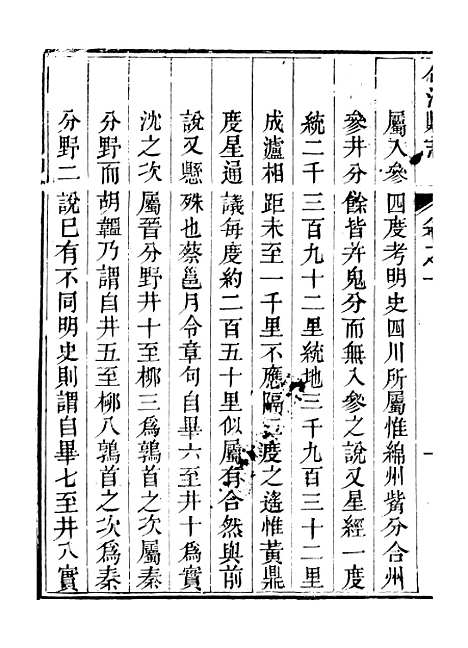 屬入參四度考明史四川所屬惟綿州觜分合州
參井分餘皆井鬼分而無入參之說又星經一度
統二千三百九十二里統地三千九百三十二里
成瀘相距未至一千里不應隔三度之遙惟黃鼎
度星通議每度約二百五十里似屬有合然與前
說又懸殊也蔡邕月令章句自畢六至井十爲實
沈之次屬晉分野井十至柳三爲鶉首之次屬秦
分野而胡韞乃謂自井五至柳八鶉首之次爲秦
分野二說已有不同明史則謂自畢七至井八實